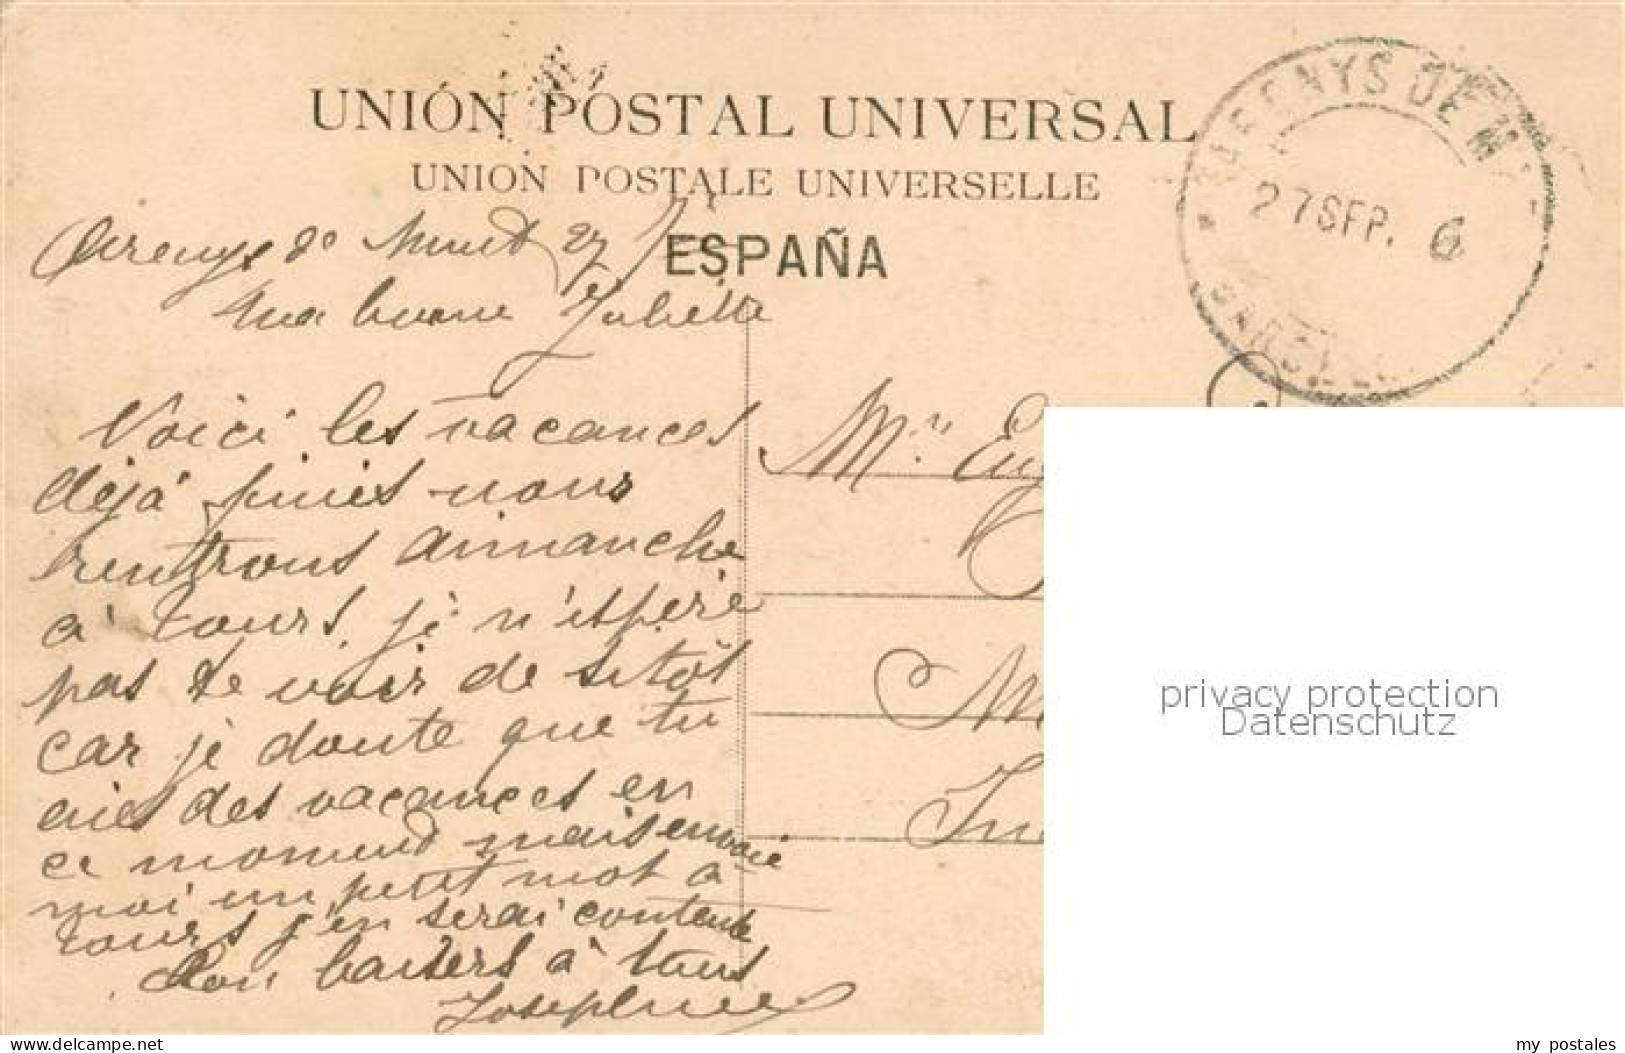 UNIÓN POSTAL UNIVERSAL
UNION POSTALE UNIVERSELLE
ESPAÑA
27 SEP. 6
Arenys de Munt 27
Ma bonne Juliette
Voici les vacances
déjà finies nous
rentrons dimanche
à Tours. je n'espère
pas te voir de sitôt
car je doute que tu
aies des vacances en
ce moment mais envoie
moi un petit mot à
Tours j'en serai contente
Bon baisers à tous
Josephine
privacy protection
Datenschutz
www.delcampe.net
my_postales